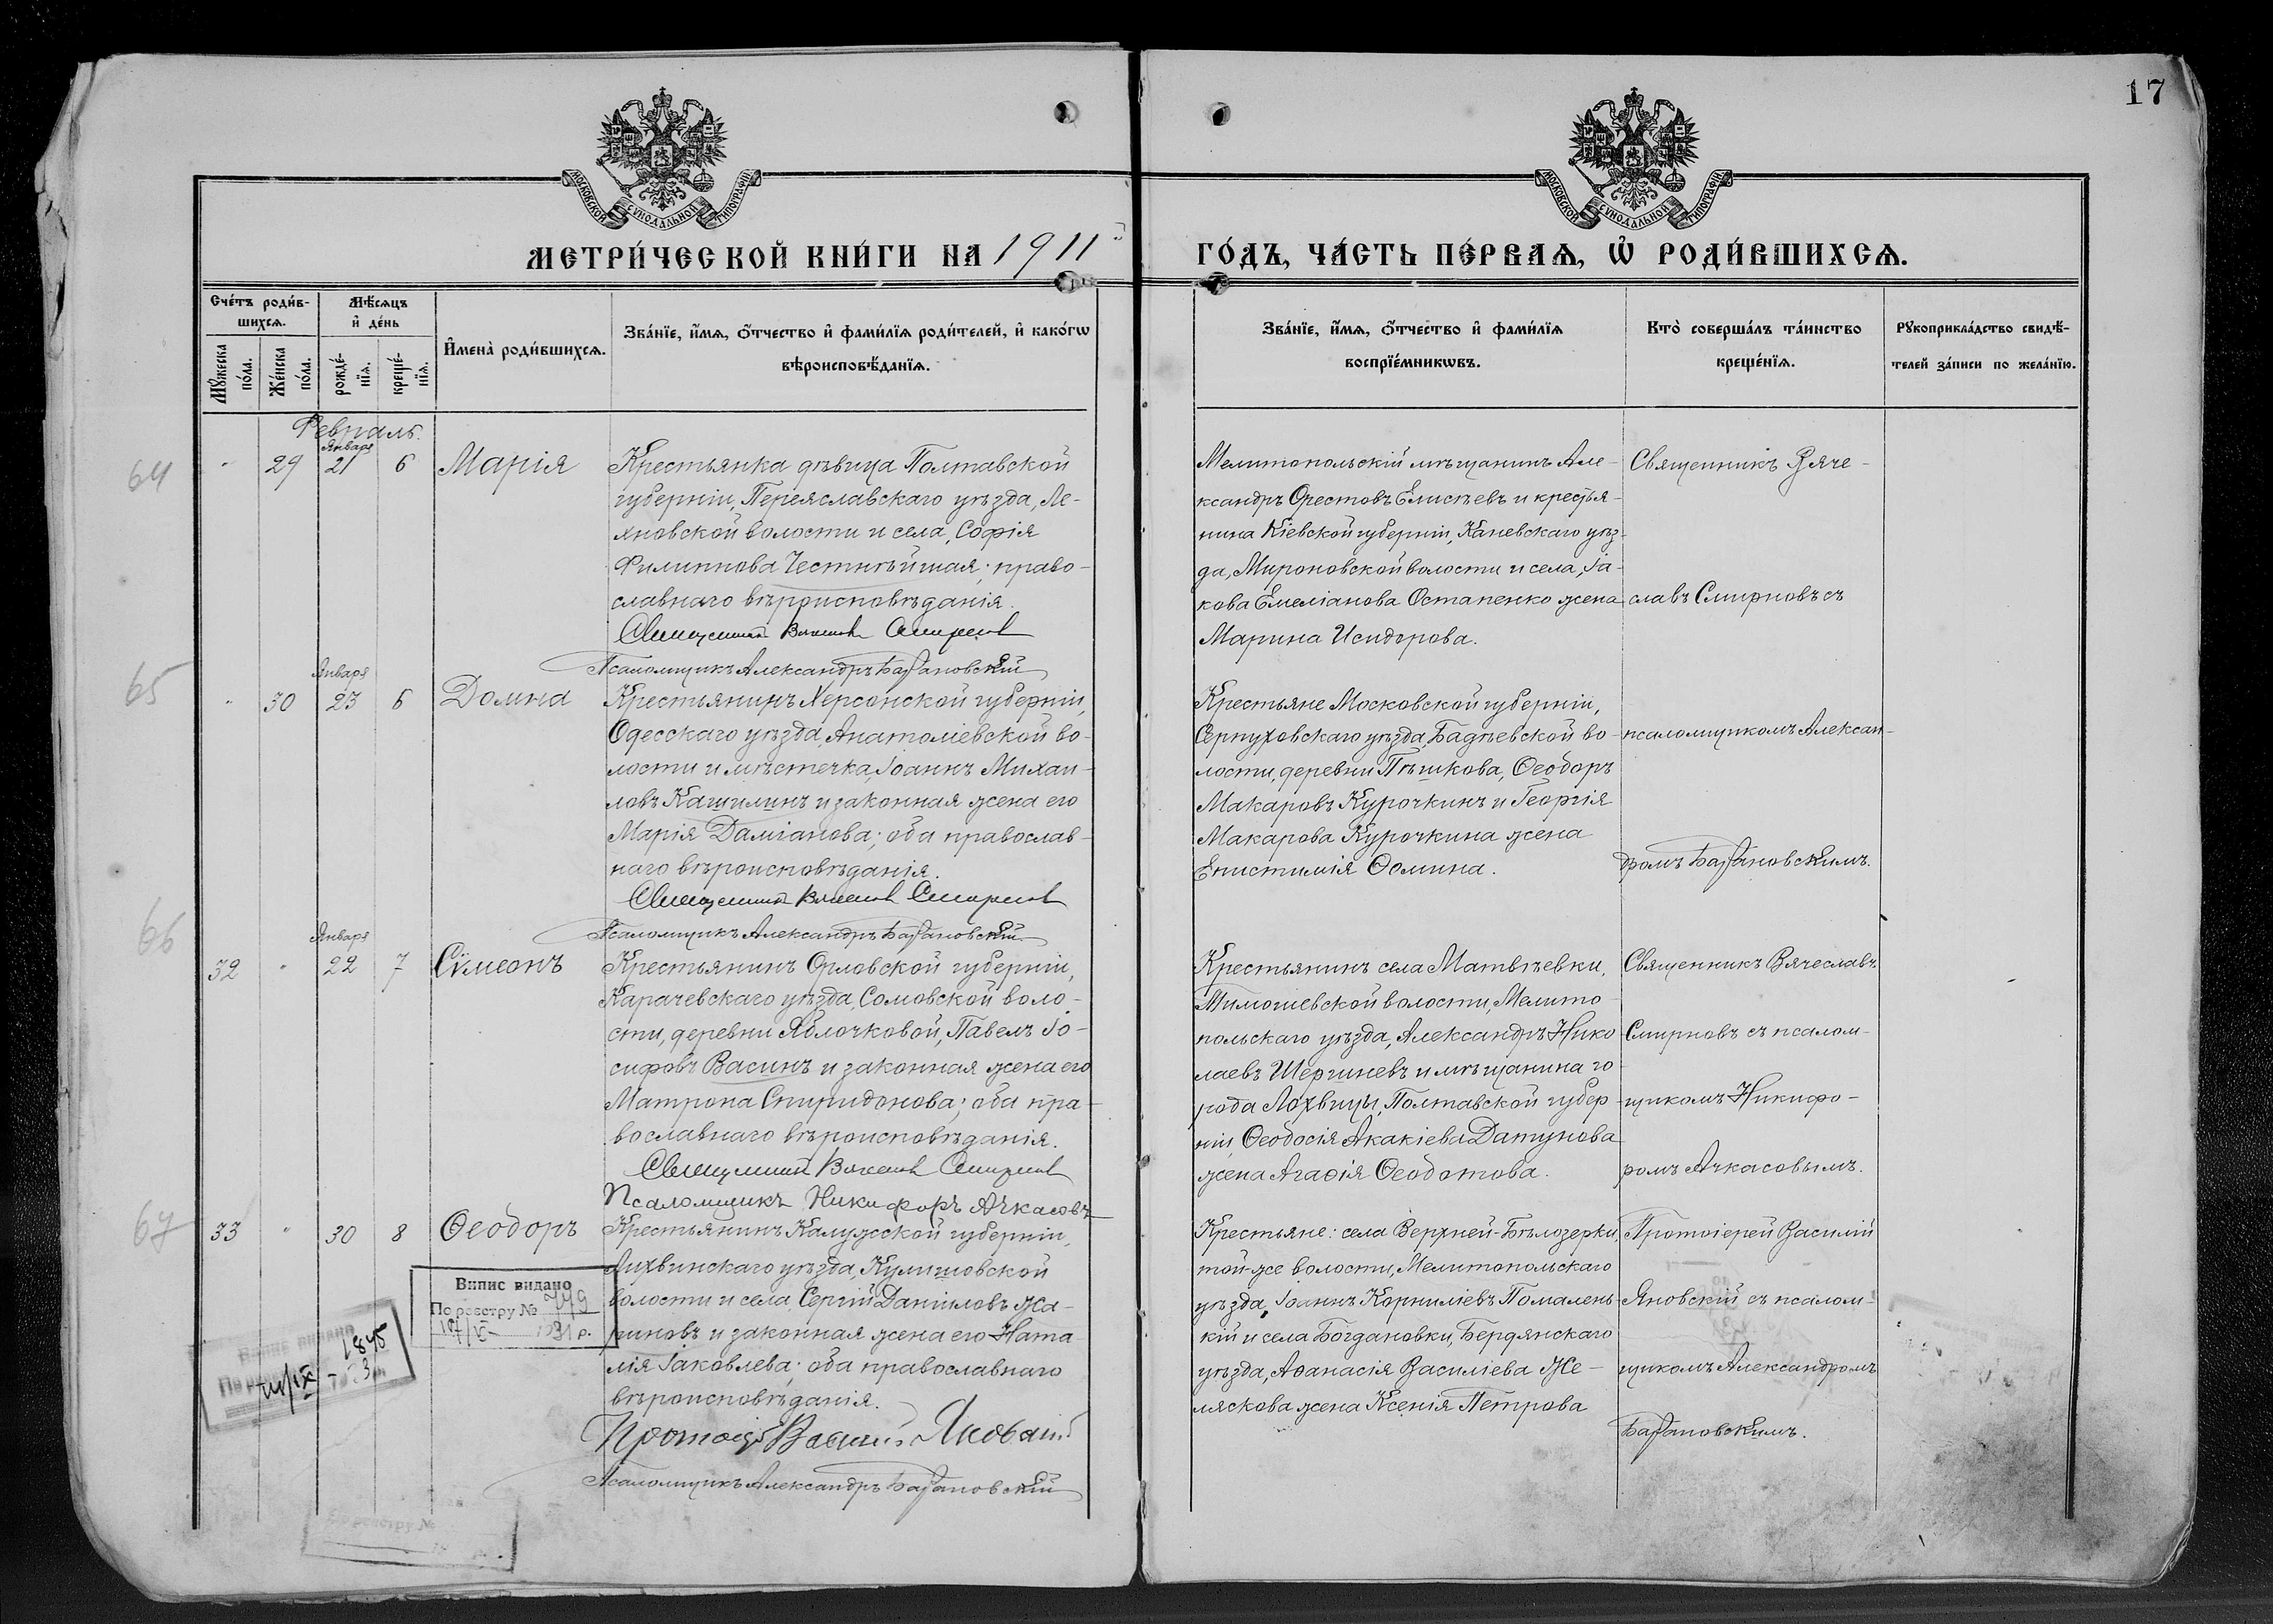 17
МОСКОВСКОЙ СѴНОДАЛЬНОЙ ТИПОГРАФІИ
МОСКОВСКОЙ СѴНОДАЛЬНОЙ ТИПОГРАФІИ
МЕТРИ́ЧЕСКОЙ КНИ́ГИ НА 1911
ГО́ДЪ, ЧА́СТЬ ПЕ́РВАѦ, Ѡ҆ РОДИ́ВШИХСѦ.
Сче́тъ роди́в-
шихсѧ.
Мꙋ́жеска по́ла.
Же́нска по́ла.
Мѣ́сѧцъ
и҆ де́нь
рожде́-
нїѧ.
креще́-
нїѧ.
И҆мена̀ роди́вшихсѧ.
Зва́нїе, и҆́мѧ, ѻ҆́тчество и҆ фами́лїѧ роди́телей, и҆ како́гѡ
вѣроисповѣ́данїѧ.
Зва́нїе, и҆́мѧ, ѻ҆́тчество и҆ фами́лїѧ
воспрїе́мникѡвъ.
Кто̀ соверша́лъ та́инство
креще́нїѧ.
Рꙋкоприкла́дство свидѣ́-
телей за́писи по жела́нїю.
Февраль.
64
" 29 Января 21 6 Марія
Крестьянка дѣвица Полтавской
губерніи, Переяславскаго уѣзда, Ле-
ляновской волости и села, Софія
Филиппова Честнѣйшая; право-
славнаго вѣроисповѣданія.
Священникъ Вячеславъ Смирновъ
Псаломщикъ Александръ Барановскій
Мелитопольскій мѣщанинъ Але-
ксандръ Орестовъ Елисѣевъ и крестья-
нина Кіевской губерніи, Каневскаго уѣз-
да, Мироновской волости и села, Іа-
кова Емеліанова Остапенко жена
Марина Исидорова.
Священникъ Вяче-
славъ Смирновъ съ
псаломщикомъ Алексан-
дромъ Барановскимъ.
65
" 30 Января 23 6 Домна
Крестьянинъ Херсонской губерніи,
Одесскаго уѣзда, Анатоліевской во-
лости и мѣстечка, Іоаннъ Михаи-
ловъ Кашилинъ и законная жена его
Марія Даміанова; оба православ-
наго вѣроисповѣданія.
Священникъ Вячеславъ Смирновъ
Псаломщикъ Александръ Барановскій
Крестьяне Московской губерніи,
Серпуховскаго уѣзда, Бадѣевской во-
лости, деревни Пѣшкова, Ѳеодоръ
Макаровъ Курочкинъ и Георгія
Макарова Курочкина жена
Епистимія Ѳомина.
66
32 " Января 22 7 Сѵмеонъ
Крестьянинъ Орловской губерніи,
Карачевскаго уѣзда, Сомовской воло-
сти, деревни Яблочковой, Павелъ Іо-
сифовъ Васинъ и законная жена его
Матрона Спиридонова; оба пра-
вославнаго вѣроисповѣданія.
Священникъ Вячеславъ Смирновъ
Псаломщикъ Никифоръ Ачкасовъ
Крестьянинъ села Матвѣевки,
Тимошевской волости, Мелито-
польскаго уѣзда, Александръ Нико-
лаевъ Шершневъ и мѣщанина го-
рода Лохвицы, Полтавской губер-
ніи, Ѳеодосія Акакіева Датунова
жена Агаѳія Ѳеодотова.
Священникъ Вячеславъ
Смирновъ съ псалом-
щикомъ Никифо-
ромъ Ачкасовымъ.
67
33 " 30 8 Ѳеодоръ
Крестьянинъ Калужской губерніи,
Лихвинскаго уѣзда, Кулишовской
волости и села, Сергій Даніиловъ Жа-
риновъ и законная жена его Ната-
лія Іаковлева; оба православнаго
вѣроисповѣданія.
Протоіерей Василій Яновскій
Псаломщикъ Александръ Барановскій
Крестьяне: села Верхней-Бѣлозерки,
той-же волости, Мелитопольскаго
уѣзда, Іоаннъ Корниліевъ Помалень-
кій и села Богдановки, Бердянскаго
уѣзда, Аѳанасія Василіева Же-
ляскова жена Ксенія Петрова
Протоіерей Василій
Яновскій съ псалом-
щикомъ Александромъ
Барановскимъ.
Випис видано
По реєстру № 779
31 р.
Випис видано
1845